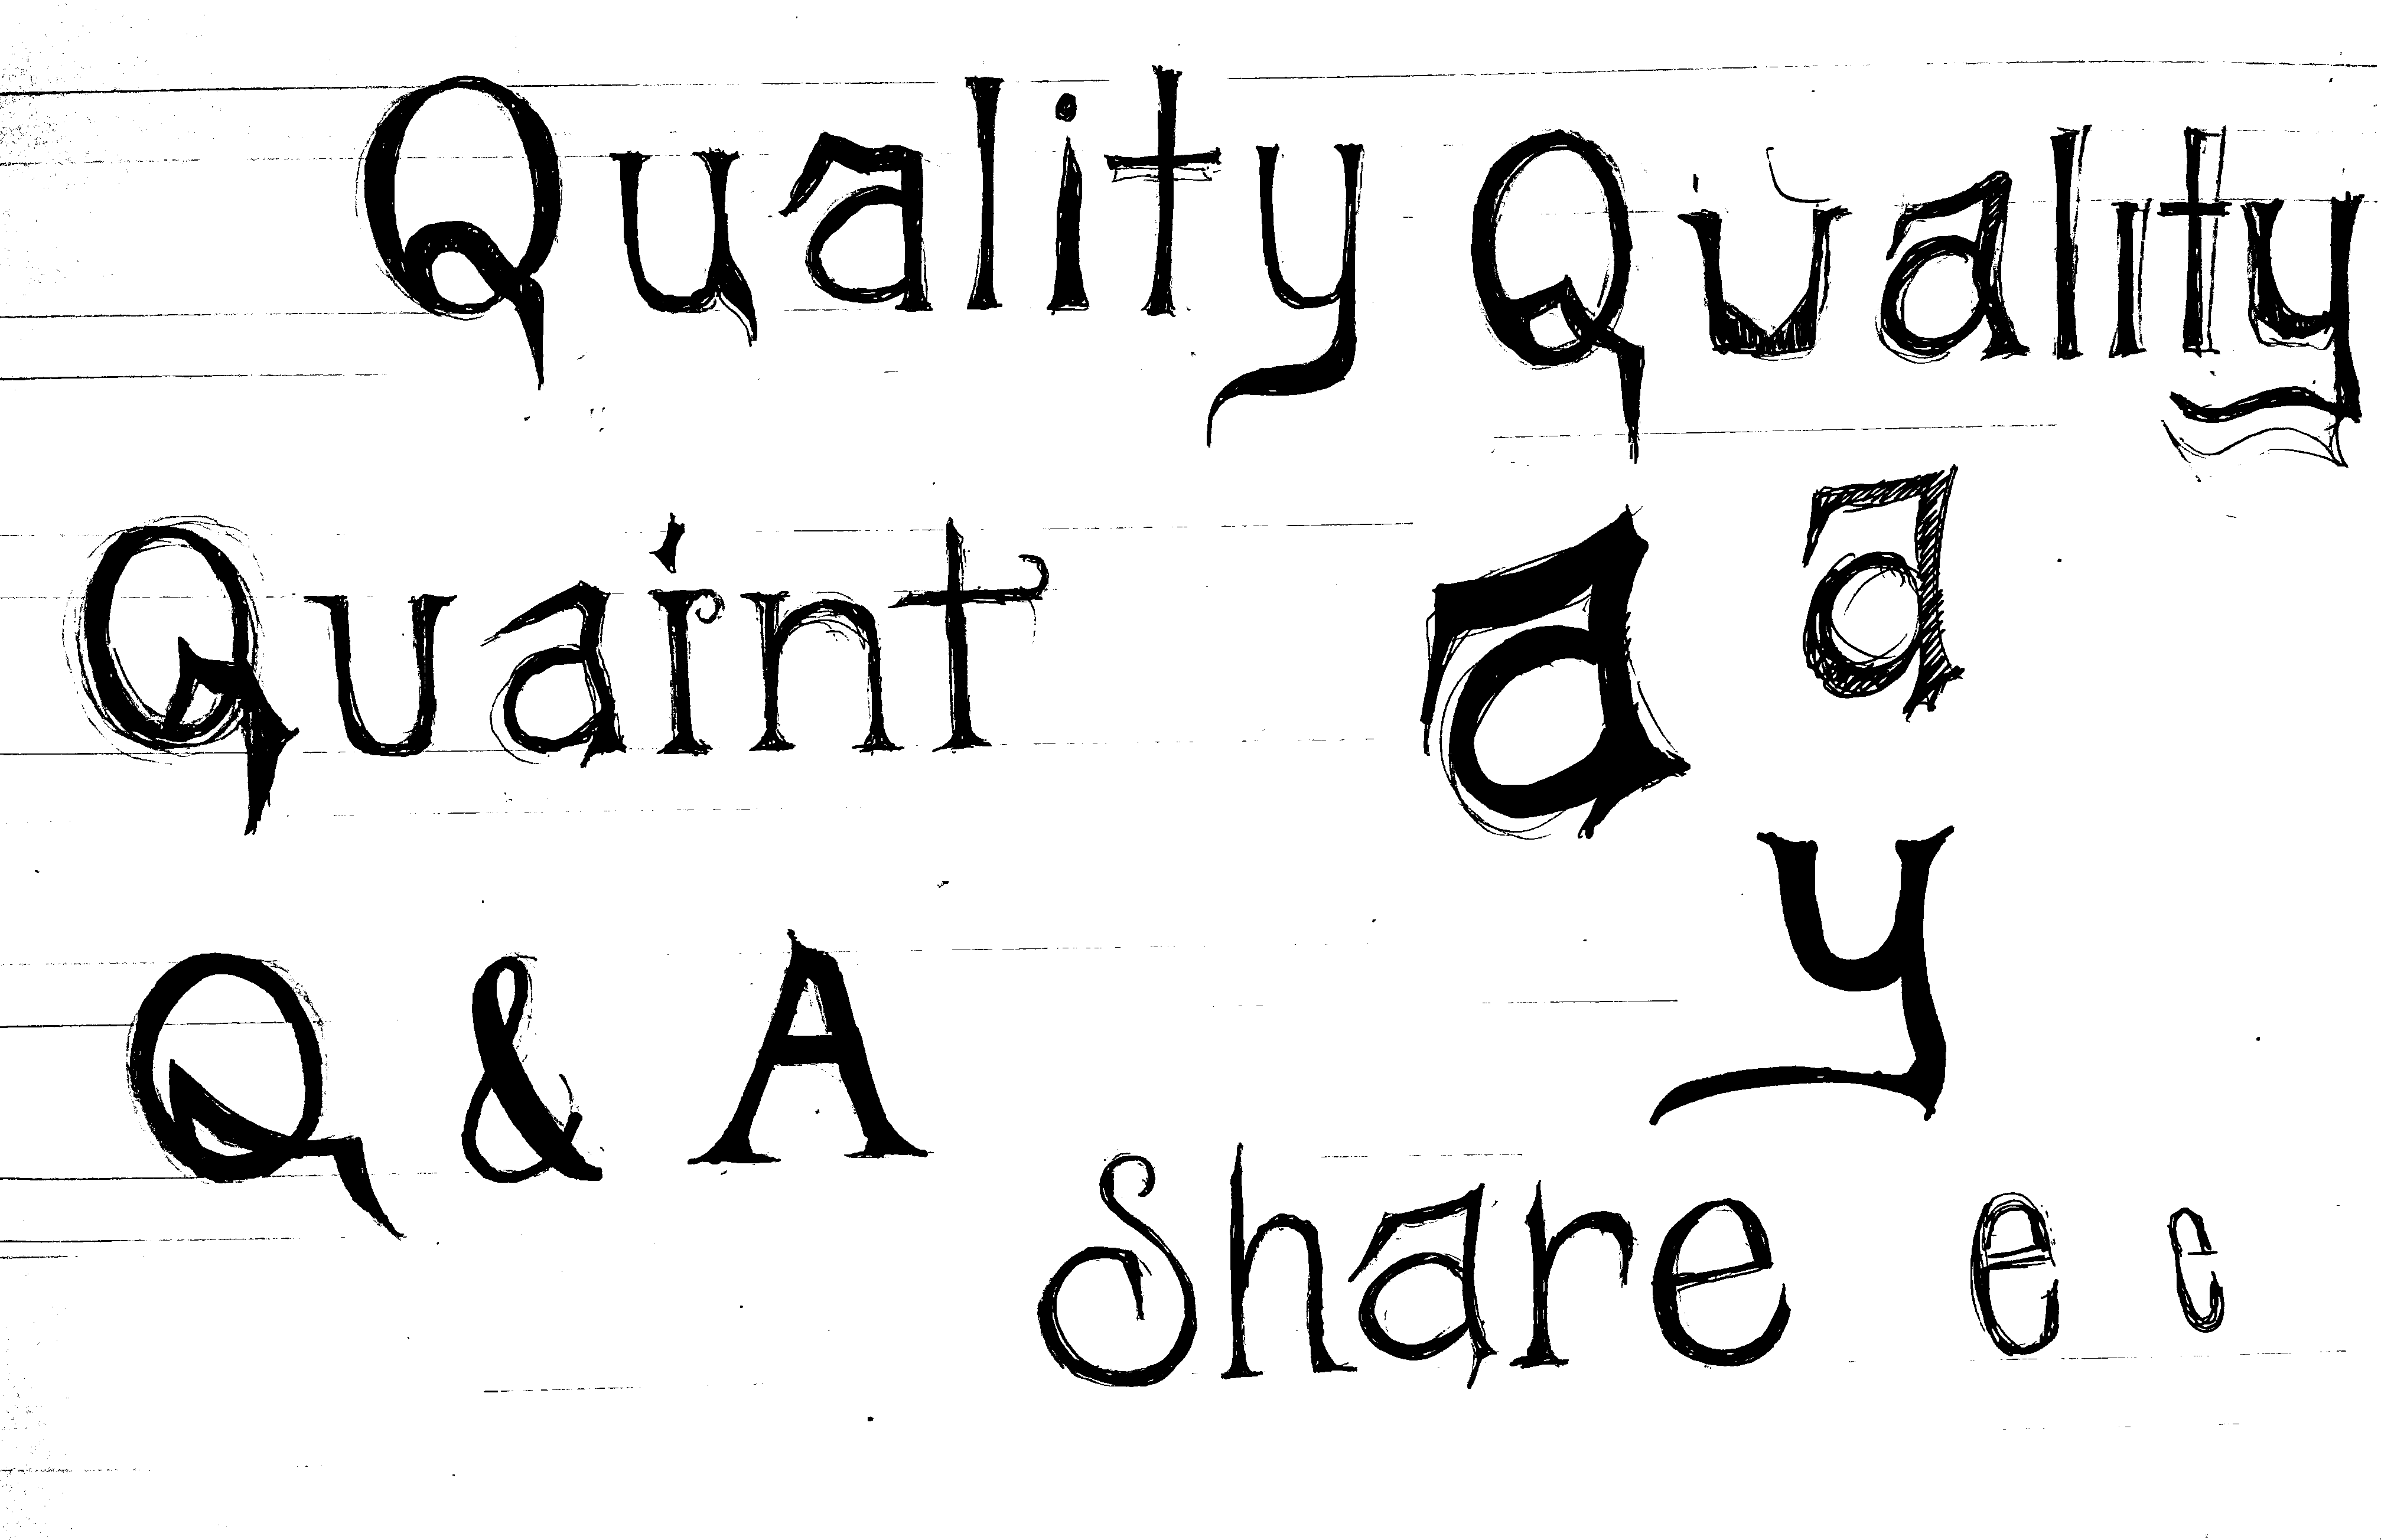 Quality Quality
Quaint a a
y
Q & A
Share e e